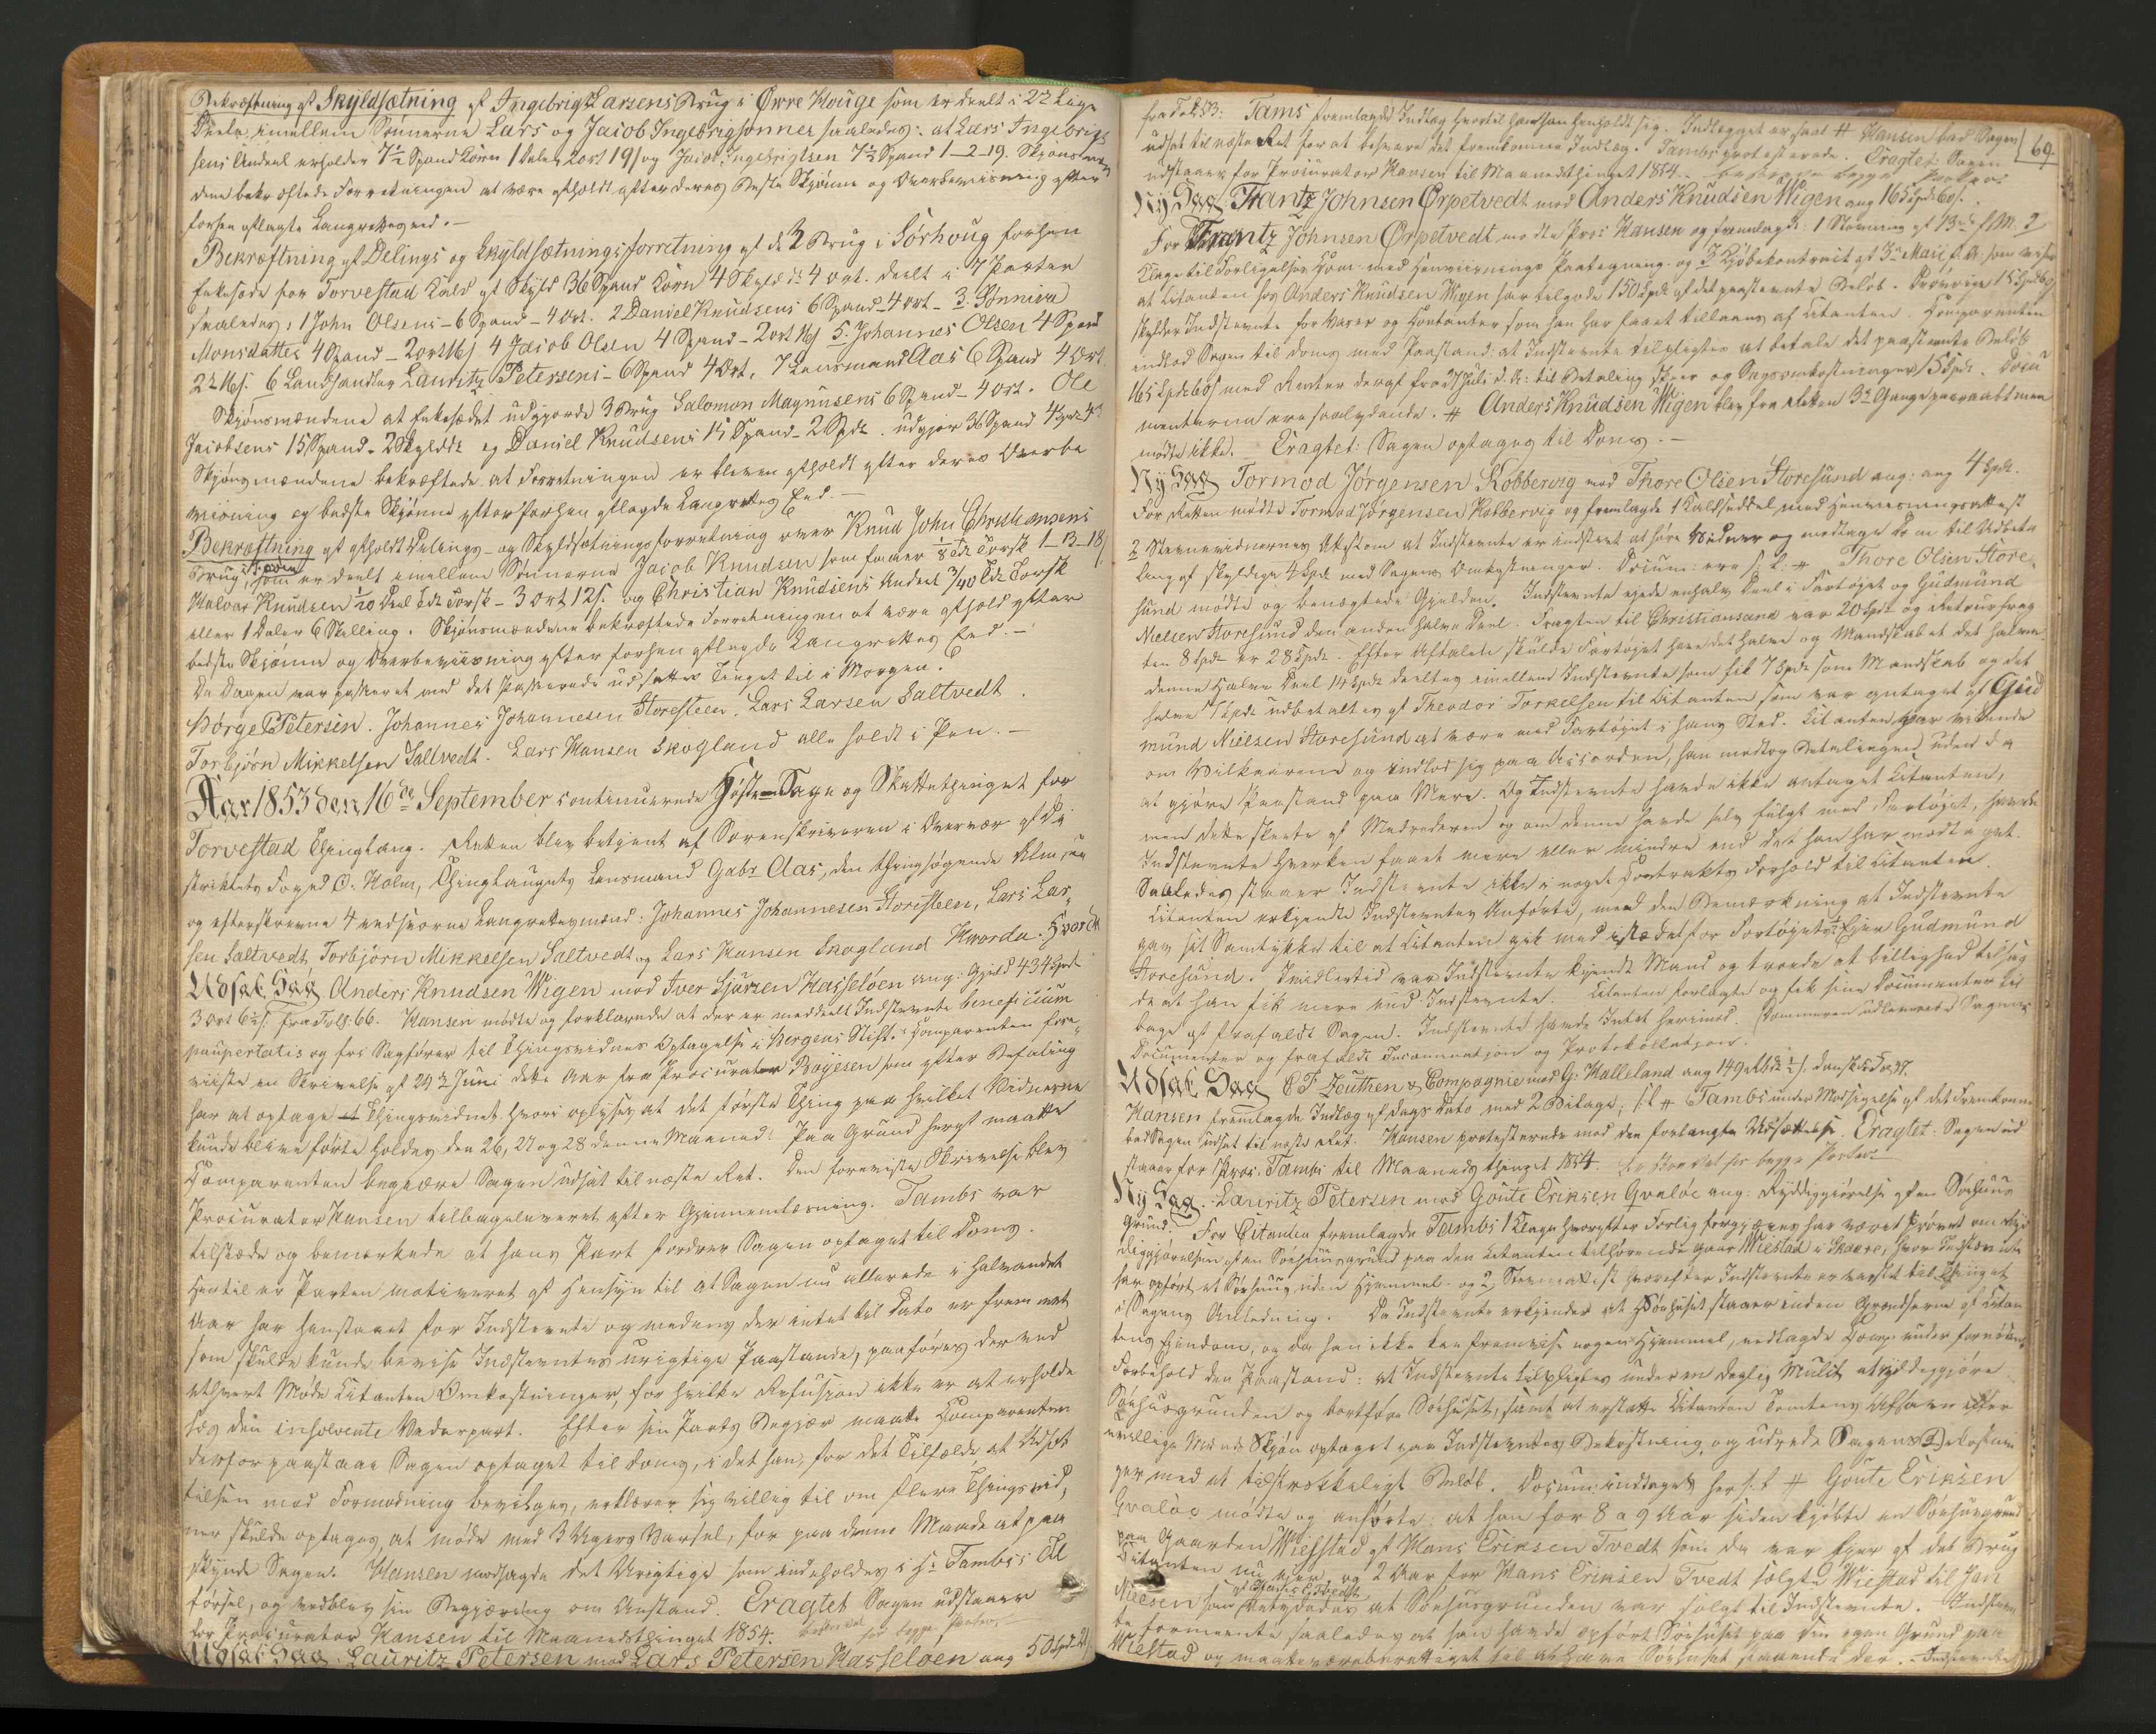 Bekræftning af Skyldsætning af Ingebrigt Larsens Brug i Øvre Houge som er deelt i 2de Lige
Deele imellem Sønnerne Lars og Jacob Ingebrigtsønner saaledes: at Lars Ingebrigt
sens Andeel erholder 7½ Spand Korn 1 Daler 2 ort 19/ og Jacob Ingebrigtsen 7½ Spand 1–2–19. Skjønsmæn
dene bekræftede Forretningen at være afholdt efter deres Bedste Skjønne og Overbeviisning efter
forhen aflagte Laugrettes eed.–
Bekræftning af Delings og Skyldsætningsforretning af de 3 Brug i Sørhoug forhen
Enkesæde for Torvestad Kald af Skyld 36 Spand Korn 4 Skyldd: 4 ort. deelt i 7 Parter
saaledes: 1 John Olsens – 6 Spand – 4 Ort. 2 Daniel Knudsens 6 Spand – 4 ort – 3. Sønniva
Monsdatter 4 Spand – 2 ort 16/ 4 Jacob Olsen 4 Spand – 2 ort 16/ 5. Johannes Olsen 4 Spand
2 ort 16/. 6 Landhandler Lauritz Petersens – 6 Spand 4 Ort. 7 Lensmand Aas 6 Spand 4 Ort.
Skjønsmændene at Enkesædet udgjorde 3 Brug Salomon Magnusens 6 Spand – 4 ort. Ole
Jacobsens 15 Spand – 2 Skyldd: og Daniel Knudsens 15 Spand – 2 Spd: udgjør 36 Spand 4 Spd: 4 ort
Skjønsmændene bekræftede at Forretningen er bleven afholdt efter deres Overbe
viisning og bedste Skjønne efter forhen aflagde Laugrettes Eed.–
Bekræftning af afholdt Delings- og Skyldsætningsforretning over Knud John Christiansens
Brug i som er deelt imellem Sønnerne Jacob Knudsen som faaer 1/8 Torsk 1–13–18/
Halvor Knudsen 1/20 Deel Torsk – 3 Ort 12/. og Christian Knudsens Andeel 7/40 Torsk
eller 1 Daler 6 Skilling. Skjønsmændene bekræftede Forretningen at være afholdt efter
bedste Skjønne og Overbeviisning efter forhen aflagde Laugrettes Eed.–
Da Dagen var passeret med det Passerede udsattes Tinget til i Morgen.
Børge Petersen. Johannes Johannesen Storesteen. Lars Larsen Saltvedt.
Torbjørn Mikkelsen Saltvedt. Lars Hansen Skogland alle holdt i Pen.–
Aar 1853 den 16de September continuerede Høste-Sage og Skattethinget for
Torvestad Thinglaug. Retten blev betjent af Sorenskriveren i Overvær af Di
striktets Foged C. Holm, Thinglaugets Lensmand Gabr Aas, den thingsøgende Almue
og efterskrevne 4 eedsvorne Laugrettesmænd: Johannes Johannesen Storesteen, Lars Lar,
sen Saltvedt, Torbjørn Mikkelsen Saltvedt og Lars Hansen Skogland. Hvorda. Hvorda
Udsat Sag Anders Knudsen Wigen mod Iver Sjursen Hasseløen ang: Gjeld 434 Spd:
3 Ort 6½/. fra Fol: 66. Hansen mødte og forklarede at der er meddeelt Indstevnte beneficium
paupertatis og for Sagfører til Thingsvidnes Optagelse i Bergens Stift. Comparenten fore,
viiste en Skrivelse af 24de Juni dette Aar fra Procurator Bøyesen som efter Befaling
har at optage et Thingsvidnet, hvori oplyses, at det første Thing paa hvilket Vidnerne
kunde blive førte holdes den 26, 27 og 28 denne Maaned. Paa Grund heraf maatte
Comparenten begjære Sagen udsat til næste Ret. Den foreviste Skrivelse blev
Procurator Hansen tilbageleveret efter Gjennemlæsning. Tambs var
tilstede og bemærkede at hans Part fordrer Sagen optaget til Doms.
Hertil er Parten motiveret af Hensyn til at Sagen nu allerede i halvandet
Aar har henstaaet for Indstevnte og medens der intet til Dato er fremmet
som skulde kunde bevise Indstevntes urigtige Paastande, paaføres der ved
ethvert Møde Citanten Omkostninger, for hvilke Refusion ikke er at erholde
hos den insolvente Vederpart. Efter sin Parts Begjær maatte Comparenten
derfor paastaae Sagen optaget til Doms, i det han, for det Tilfælde at Udsæt
telsen mod Formodning bevilges, erklærer sig villig til om flere Thingsvid,
ner skulde optages, at møde med 3 Ugers Varsel, for paa denne Maade at paa
skynde Sagen. Hansen modsagde det Urigtige som indeholdes i Hr Tambs's Til
førsel, og vedblev sin Begjæring om Anstand. Eragtet Sagen udstaaer
for Procurator Hansen til Maanedsthinget 1854. beroer ved for begge Parter
Udsat Sag. Lauritz Petersen mod Lars Petersen Hasseløen ang 50 Spd: 21
69
fra Fol 53: Tams fremlagde Indlæg hvortil han henholdt sig. Indlægget er saal # Hansen bad Sagen
udsat til næste Ret for at besvare det fremkomne Indlæg. Tambs protesterede. Eragtet: Sagen
udstaaer for Procurator Hansen til Maanedsthinget 1854. begge Parter
Ny Sag. Frantz Johnsen Ørpetvedt mod Anders Knudsen Wigen ang 165 Spd: 60/.
For Frantz Johnsen Ørpetvedt mødte Proc Hansen og fremlagde: 1 Stevning af 13de f.M. 2
Klage til Forligelses Com. med Henviisnings Paategning og 3 Kjøbekontrakt af 3de Mai f. A: som viser
at Citanten hos Anders Knudsen Wigen har tilgode 150 Spd: af det paastevnte Beløb. Forøvrigt 15 Spd 60/
skylder Indstevnte for Varer og Contanter som han har faaet tillaans af Citanten. Comparenten
indlod Sagen til Doms med Paastand: at Indstevnte tilpligtes at betale det paastevnte Beløb
165 Spd: 60/ med Renter deraf fra 27 Juli d.A: til Betaling skeer og Sagsomkostninger 15 Spd:. Docu
menterne ere saalydende. # Anders Knudsen Wigen blev fra Retten 3de Gange paaraabt men
mødte ikke. Eragtet: Sagen optages til Doms.–
Ny Sag Tormod Jørgensen Kobbervig mod Thore Olsen Storesund ang: ang 4 Spd:.
For Retten mødte Tormod Jørgensen Kobbervig og fremlagde 1 Kaldseddel med Henviisningsattest
2 Stevnevidnernes Attest om at Indstevnte er indstevnt at høre Vidner og modtage Dom til Udbeta
ling af skyldige 4 Spd: med Sagens Omkostninger. Docum: ere s: l: # Thore Olsen Store,
sund mødte og benægtede Gjelden. Indstevnte ejede enhalv Deel i Fartøjet og Gudmund
Nielsen Storesund den anden halve Deel. Fragten til Christiansand var 20 Spd: og Returfrag
ten 8 Spd: er 28 Spd:. Efter Aftalen skulde Fartøjet have det halve og Mandskabet det halve.
denne halve Deel 14 Spd: deeltes imellem Indstevnte som fik 7 Spd: som Mandskab og det
halve 7 Spd: udbetaltes af Theodor Torkelsen til Citanten som var antaget af Gud
mund Nielsen Storesund at være med Fartøjet i hans Sted. Citanten var vidende
om Vilkaarene og indlod sig paa Accorden, han modtog Betalingen uden da
at gjøre Paastand paa Mere. Og Indstevnte havde ikke antaget Citanten,
men dette skeete af Medrederen og om denne havde selv fulgt med Fartøjet, havde
Indstevnte hverken faaet mere eller mindre end det han har modtaget.
Saaledes staaer Indstevnte ikke i noget Contrakts Forhold til Citanten.
Citanten erkjendte Indstevntes Anførte, med den Bemærkning at Indstevnte
gav sit Samtykke til at Citanten gik med istedetfor Fortøjets Ejer Gudmund
Storesund. Imidlertid var Indstevnte kjendt Mand og troede at billighed tilsag
de at han fik mere end Indstevnte. Citanten forlagte og fik sine Documenter til
bage og frafaldt Sagen. Indstevnte havde Intet herimod. Dommeren udleverede Sagens
Documenter og frafaldt Incamination og Protokollation.
Udsat Sag C F Zeuthen & Compagnie mod G: Halleland ang 149 Rbd ½/. dansk
Hansen fremlagde Indlæg af Dags Dato med 2 Bilage, s: l # Tambs under Modsigelse af det Fremkomne
bad Sagen udsat til næste Ret. Hansen protesterede mod den forlangte Udsættelse. Eragtet: Sagen ud
staaer for Proc. Tambs til Maanedsthinget 1854. begge Parter
Ny Sag. Lauritz Petersen mod Goute Eriksen Qvaløe ang: Ryddiggjørelse af en Søehuus
Grund. For Citanten fremlagde Tambs 1 Klage hvorefter Forlig forgjæves har været prøvet om Ryd
diggjørelsen af en Søehuusgrund paa den Citanten tilhørende Gaard Wiestad i Skaare, hvor Indstevnte
har opført et Søehuus uden Hjemmel og 2 Stevnemaal hvorefter Indstevnte er varslet til Thinget
i Sagens Anledning. Da Indstevnte erkjender at Søehuset staaer inden Grændserne af Citan
tens Ejendom, og da han ikke kan fremvise nogen Hjemmel, nedlagde Comp under fornøden
Forbehold den Paastand: at Indstevnte tilpligtes under en daglig Mulct at ryddiggjøre
Søehusgrunden og bortføre Søehuset, samt at erstatte Citanten Tomtens Afsavn efter
uvillige Mænds Skjøn optaget paa Indstevntes Bekostning, og udrede Sagens Bekostnin
ger med et tilstrækkeligt Beløb. Docum: indtages her s: l # Goute Eriksen
Qvaløe mødte og anførte: at han for 8 a 9 Aar siden kjøbte en Søehusgrund
paa Gaarden Wiestad af Hans Eriksen Tvedt som da var Ejer af det Brug
Citanten nu ejer, og 2 Aar før Hans Eriksen Tvedt solgte Wiestad til Jan
Nielsen som af Hans E. Tvedt betydedes at Søehusgrunden var solgt til Indstevnte. Indstevn
te formeente saaledes at han havde opført Søehuset paa sin egen Grund paa
Wiestad og maatte være berettiget til at have Søehuset staaende der.– Indstevnte